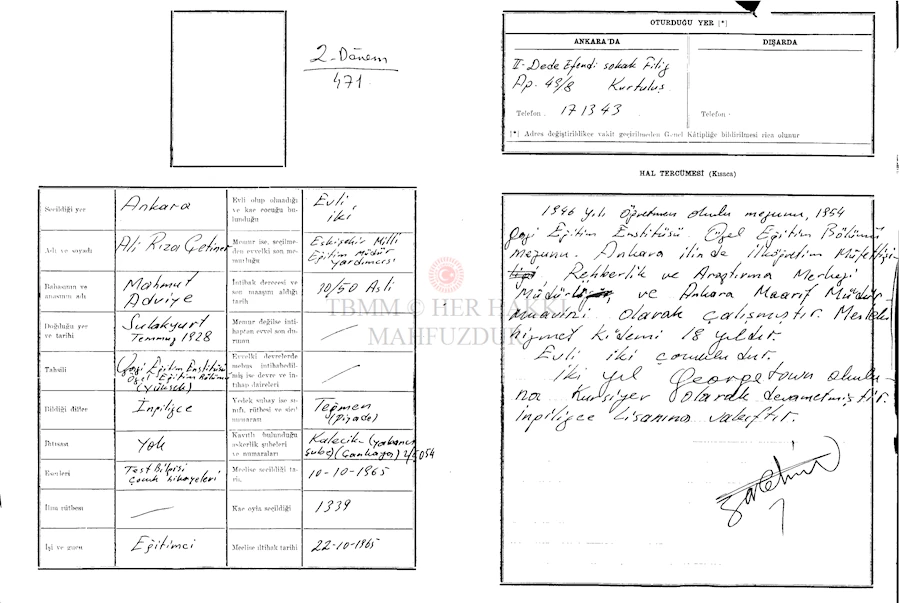 2. Dönem
471.
OTURDUĞU YER [*]
ANKARA'DA
DIŞARDA
II- Dede Efendi sokak Filiz
Ap. 49/8 Kurtuluş
Telefon : 171343
Telefon :
[*] Adres değiştirildikçe vakit geçirilmeden Genel Kâtipliğe bildirilmesi rica olunur
HAL TERCÜMESİ (Kısaca)
Seçildiği yer
Ankara
Evli olup olmadığı ve kaç çocuğu bulunduğu
Evli,
iki
Adı ve soyadı
Ali Rıza Çetiner
Memur ise, seçilmeden evvelki son memurluğu
Eskişehir Milli
Eğitim Müdür
Yardımcısı
Babasının ve anasının adı
Mahmut
Adviye
İntibak derecesi ve son maaşını aldığı tarih
10/50 Asli
Doğduğu yer ve tarihi
Sulakyurt
Temmuz 1928
Memur değilse intihaptan evvel son durumu
Tahsili
Gazi Eğitim Enstitüsü
Özel Eğitim Bölümü
(Yüksek)
Evvelki devrelerde mebus intihabedilmiş ise devre ve intihap daireleri
Bildiği diller
İngilizce
Yedek subay ise sınıfı, rütbesi ve sicil numarası
Teğmen
(Piyade)
İhtısası
Yok
Kayıtlı bulunduğu askerlik şubeleri ve numaraları
Kalecik (yabancı
şube) (Çankaya)
Eserleri
Test Bilgisi
Çocuk hikayeleri
Meclise seçildiği tarih
10-10-1965
İlmi rütbesi
Kaç oyla seçildiği
1339
İşi ve gücü
Eğitimci
Meclise iltihak tarihi
22-10-1965
1946 yılı öğretmen okulu mezunu, 1954
Gazi Eğitim Enstitüsü Özel Eğitim Bölümü
mezunu. Ankara ilinde ilköğretim Müfettişi-
Rehberlik ve Araştırma Merkezi
ve Ankara Maarif Müdür
muavini olarak çalışmıştır. Mesleki
hizmet kıdemi 18 yıldır.
Evli iki çocukludur.
iki yıl Georgetown okulu-
na Kursiyer olarak devam etmiştir.
ingilizce lisanına vakıftır.
TBMM © HER HAKKI
MAHFUZDUR